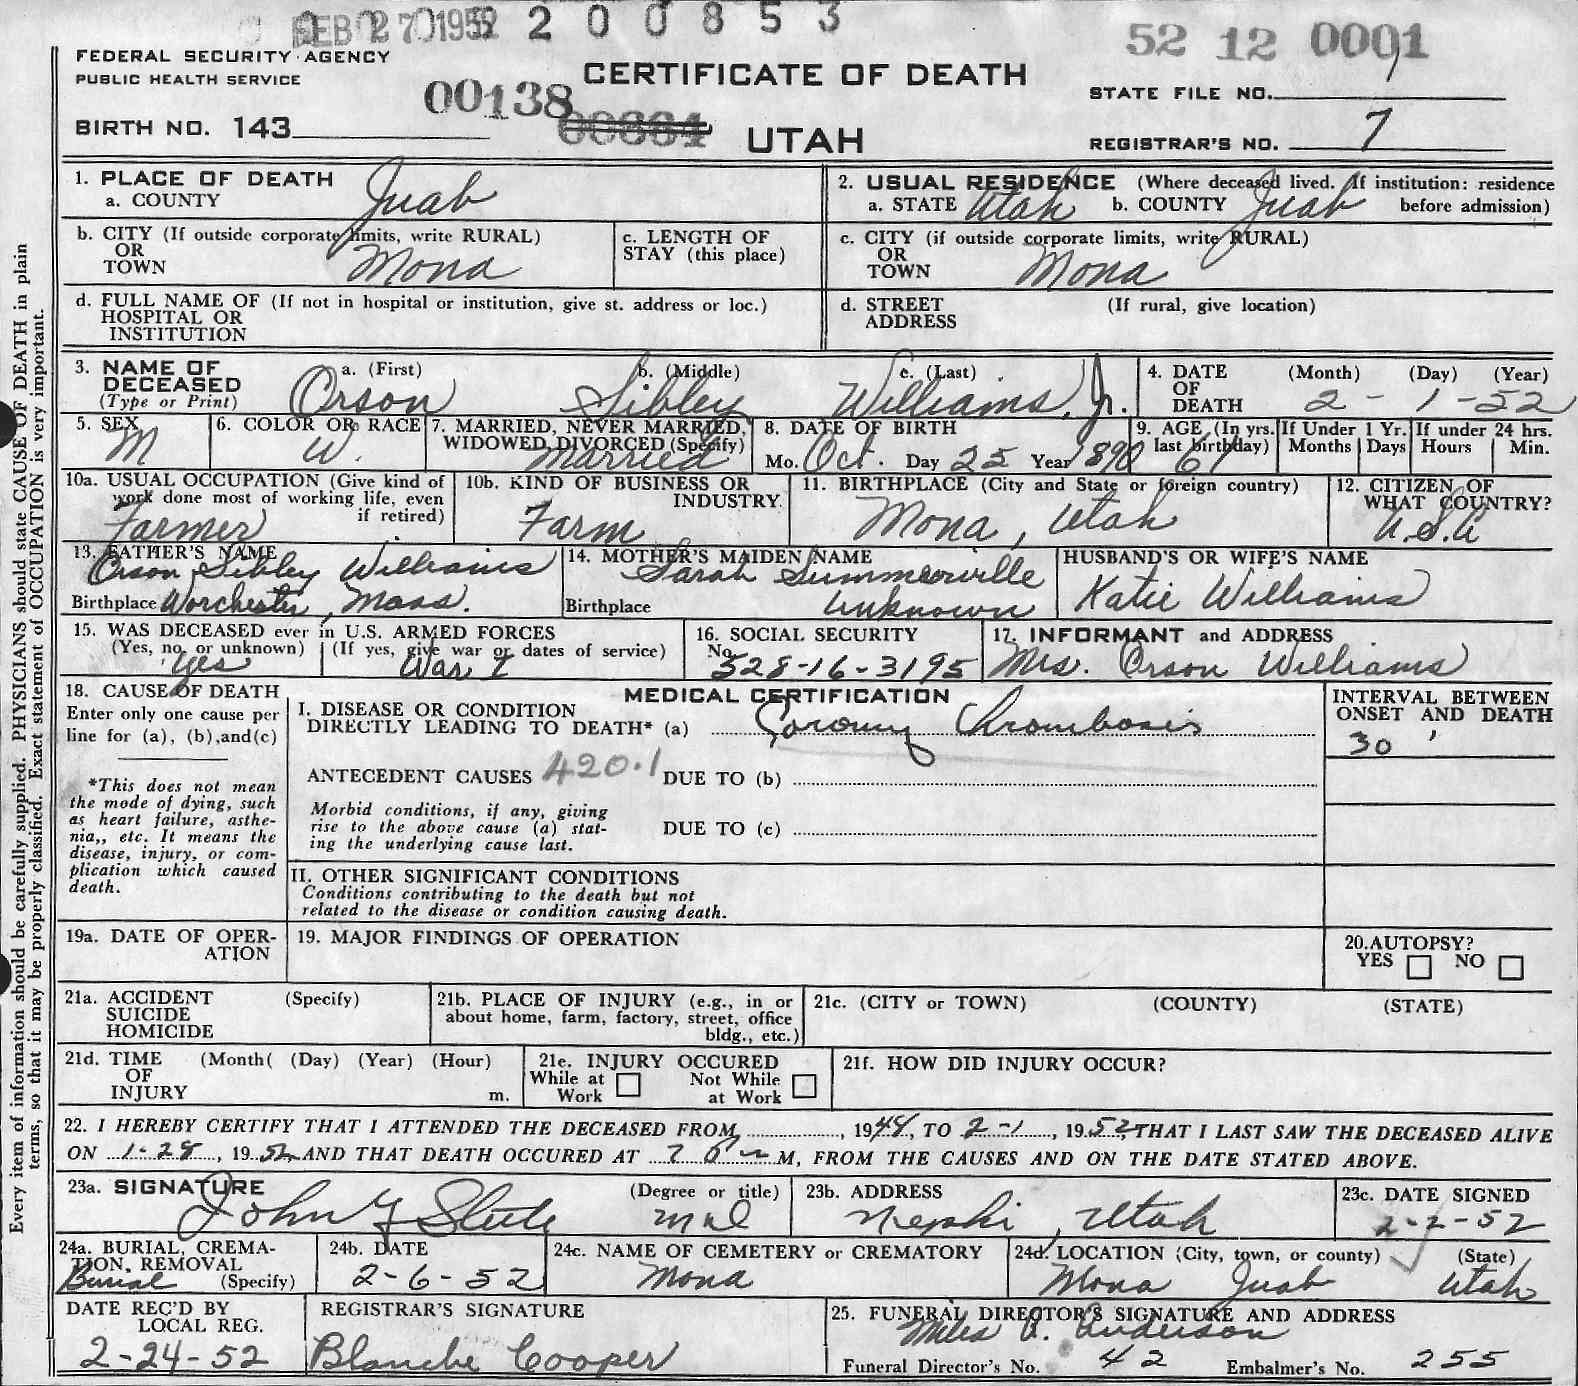 FEB 27 1952 200853
52 12 0001
FEDERAL SECURITY AGENCY
PUBLIC HEALTH SERVICE
CERTIFICATE OF DEATH
00138
STATE FILE NO.
BIRTH NO. 143
UTAH
REGISTRAR'S NO. 7
1. PLACE OF DEATH
a. COUNTY Juab
2. USUAL RESIDENCE (Where deceased lived. If institution: residence
a. STATE Utah b. COUNTY Juab before admission)
b. CITY (If outside corporate limits, write RURAL)
OR
TOWN Mona
c. LENGTH OF
STAY (this place)
c. CITY (if outside corporate limits, write RURAL)
OR
TOWN Mona
d. FULL NAME OF (If not in hospital or institution, give st. address or loc.)
HOSPITAL OR
INSTITUTION
d. STREET (If rural, give location)
ADDRESS
3. NAME OF a. (First) b. (Middle) c. (Last)
DECEASED
(Type or Print) Orson Sibley Williams, Jr.
4. DATE (Month) (Day) (Year)
OF
DEATH 2 - 1 - 52
5. SEX
M
6. COLOR OR RACE
W.
7. MARRIED, NEVER MARRIED,
WIDOWED, DIVORCED (Specify)
Married
8. DATE OF BIRTH
Mo. Oct. Day 25 Year 1890
9. AGE (In yrs.
last birthday) 61
If Under 1 Yr.
Months Days
If under 24 hrs.
Hours Min.
10a. USUAL OCCUPATION (Give kind of
work done most of working life, even
if retired)
Farmer
10b. KIND OF BUSINESS OR
INDUSTRY
Farm
11. BIRTHPLACE (City and State or foreign country)
Mona, Utah
12. CITIZEN OF
WHAT COUNTRY?
U.S.A
13. FATHER'S NAME
Orson Sibley Williams
Birthplace Worchester, Mass.
14. MOTHER'S MAIDEN NAME
Sarah Summerville
Birthplace Unknown
HUSBAND'S OR WIFE'S NAME
Katie Williams
15. WAS DECEASED ever in U.S. ARMED FORCES
(Yes, no, or unknown) (If yes, give war or dates of service)
Yes War I
16. SOCIAL SECURITY
No. 528-16-3195
17. INFORMANT and ADDRESS
Mrs. Orson Williams
18. CAUSE OF DEATH
Enter only one cause per
line for (a), (b),and(c)
*This does not mean
the mode of dying, such
as heart failure, asthe-
nia,, etc. It means the
disease, injury, or com-
plication which caused
death.
MEDICAL CERTIFICATION
I. DISEASE OR CONDITION
DIRECTLY LEADING TO DEATH* (a) Coronary Thrombosis
ANTECEDENT CAUSES 420.1 DUE TO (b)
Morbid conditions, if any, giving
rise to the above cause (a) stat-
ing the underlying cause last.
DUE TO (c)
INTERVAL BETWEEN
ONSET AND DEATH
30 '
II. OTHER SIGNIFICANT CONDITIONS
Conditions contributing to the death but not
related to the disease or condition causing death.
19a. DATE OF OPER-
ATION
19. MAJOR FINDINGS OF OPERATION
20.AUTOPSY?
YES NO
21a. ACCIDENT (Specify)
SUICIDE
HOMICIDE
21b. PLACE OF INJURY (e.g., in or
about home, farm, factory, street, office
bldg., etc.)
21c. (CITY or TOWN) (COUNTY) (STATE)
21d. TIME (Month( (Day) (Year) (Hour)
OF
INJURY m.
21e. INJURY OCCURED
While at Not While
Work at Work
21f. HOW DID INJURY OCCUR?
22. I HEREBY CERTIFY THAT I ATTENDED THE DECEASED FROM, 1944, TO 2-1, 1952, THAT I LAST SAW THE DECEASED ALIVE
ON 1-28, 1952 AND THAT DEATH OCCURED AT 7 M, FROM THE CAUSES AND ON THE DATE STATED ABOVE.
23a. SIGNATURE (Degree or title)
John
23b. ADDRESS
Nephi, Utah
23c. DATE SIGNED
2-2-52
24a. BURIAL, CREMA-
TION, REMOVAL
Burial (Specify)
24b. DATE
2-6-52
24c. NAME OF CEMETERY or CREMATORY
Mona
24d. LOCATION (City, town, or county) (State)
Mona Juab Utah
DATE REC'D BY
LOCAL REG.
2-24-52
REGISTRAR'S SIGNATURE
Blanche Cooper
25. FUNERAL DIRECTOR'S SIGNATURE AND ADDRESS
Miles A. Anderson
Funeral Director's No. 42 Embalmer's No. 255
Every item of information should be carefully supplied. PHYSICIANS should state CAUSE OF DEATH in plain
terms, so that it may be properly classified. Exact statement of OCCUPATION is very important.